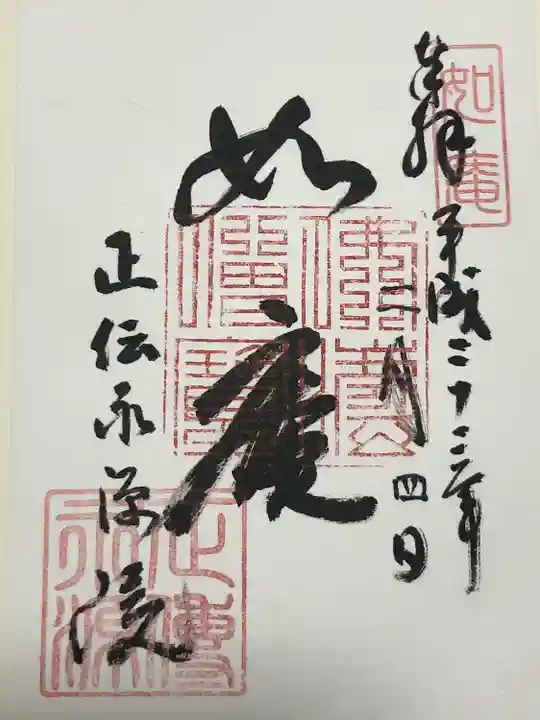 如庵
奉拝
平成二十三年
二月四日
如庵
正伝永源院
正傳
永源